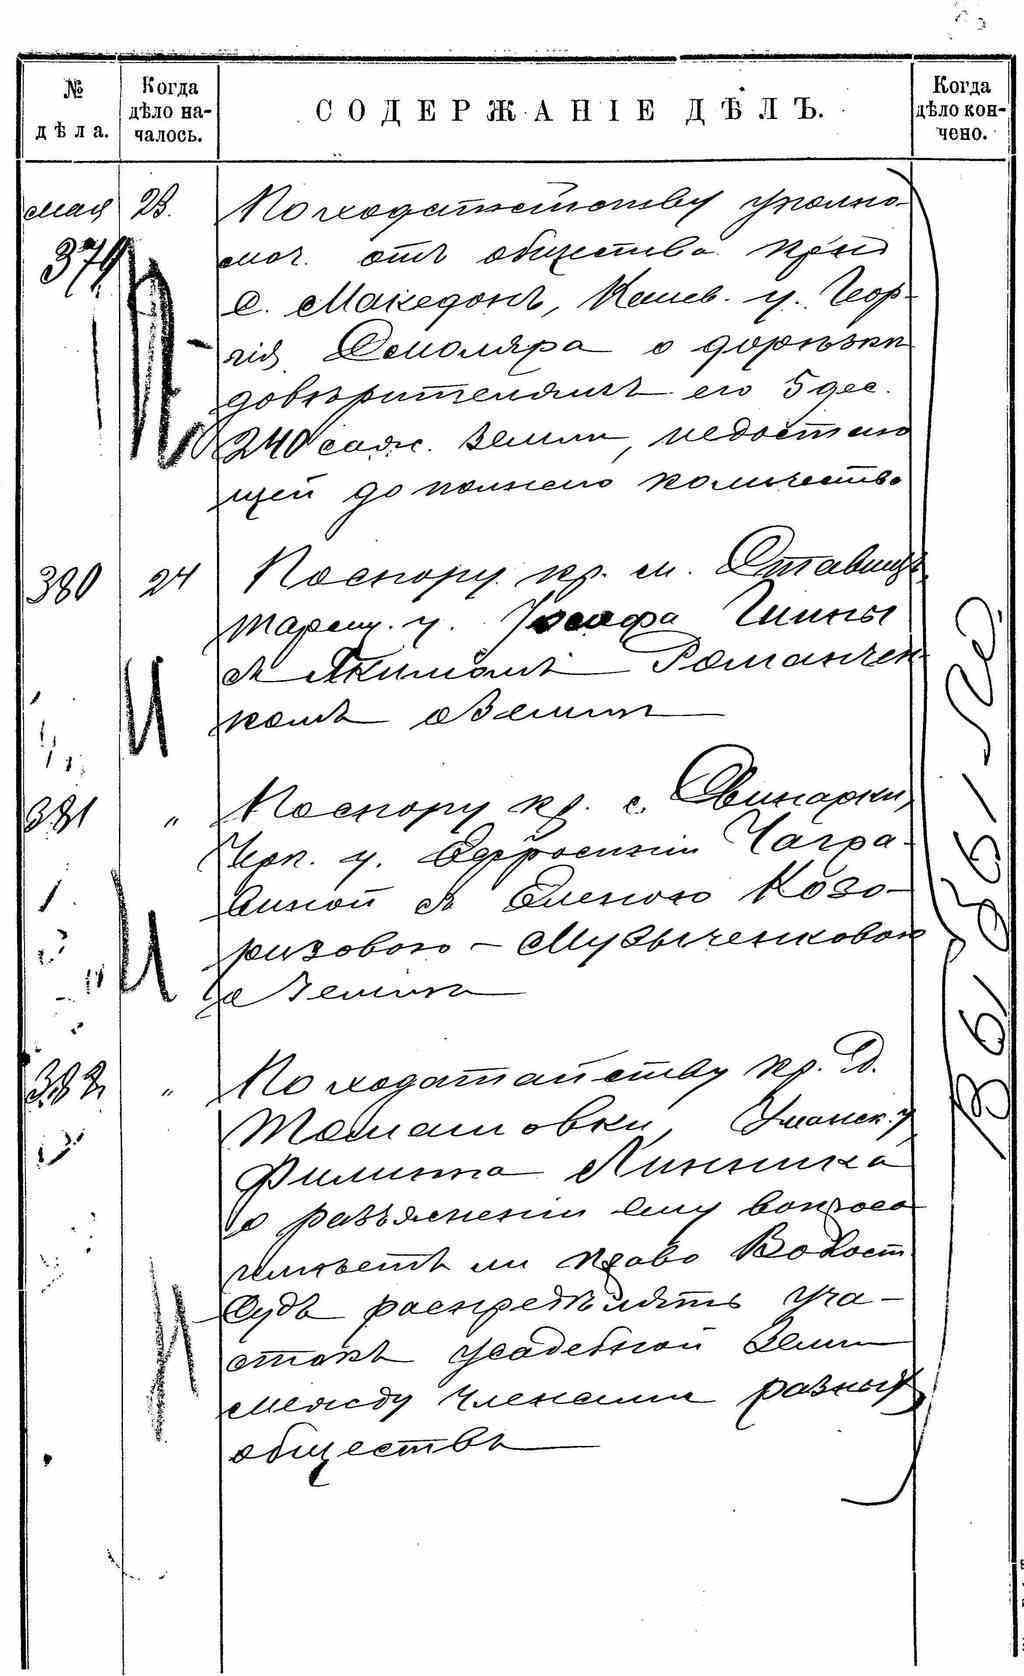 № дѣла.
Когда дѣло началось.
СОДЕРЖАНІЕ ДѢЛЪ.
Когда дѣло кончено.
мая 23.
379
По ходатайству уполно-
моч. отъ общества кр-нъ
с. Македонъ, Канев. у. Геор-
гія Смоляра о дорѣзки
довѣрителямъ его 5 дес.
240 саж. земли, недостаю
щей до полнаго количества
380 24 По спору кр. м. Ставищъ
Таращ. у. Іосифа Гинны
съ Якимомъ Романчен-
комъ о земли
И
381 " По спору кр. с. Свинарки,
Черк. у. Ефросиніи Чагра-
виной съ Еленою Козо-
ризовою - Музыченковою
о земли
И
382 " По ходатайству кр. д.
Томашовки, Уманск. у.
Филиппа Линника
о разъясненіи ему вопроса
имѣетъ ли право Волост
Судъ распредѣлять уча-
стокъ усадебной земли
между членами разныхъ
обществъ
И
ВЫБЫЛО